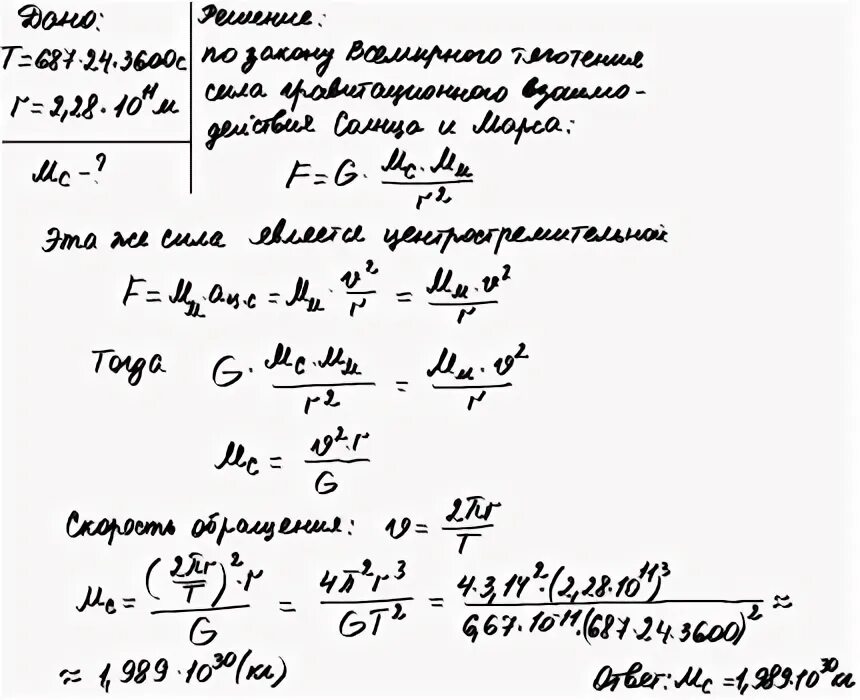 Дано:
T=687·24·3600с
r=2,28·10¹¹м
Mс-?
Решение:
по закону Всемирного тяготения
сила гравитационного взаимо-
действия Солнца и Марса:
F=G·(Mс·Mм)/r²
Эта же сила является центростремительной
F=Mм·aц.с=Mм·v²/r=(Mм·v²)/r
Тогда G·(Mс·Mм)/r²=(Mм·v²)/r
Mс=(v²·r)/G
Скорость обращения: v=2πr/T
Mс=((2πr/T)²·r)/G=4π²r³/GT²=(4·3,14²·(2,28·10¹¹)³)/(6,67·10⁻¹¹·(687·24·3600)²)≈
≈1,989·10³⁰(кг)
Ответ: Mс=1,989·10³⁰кг